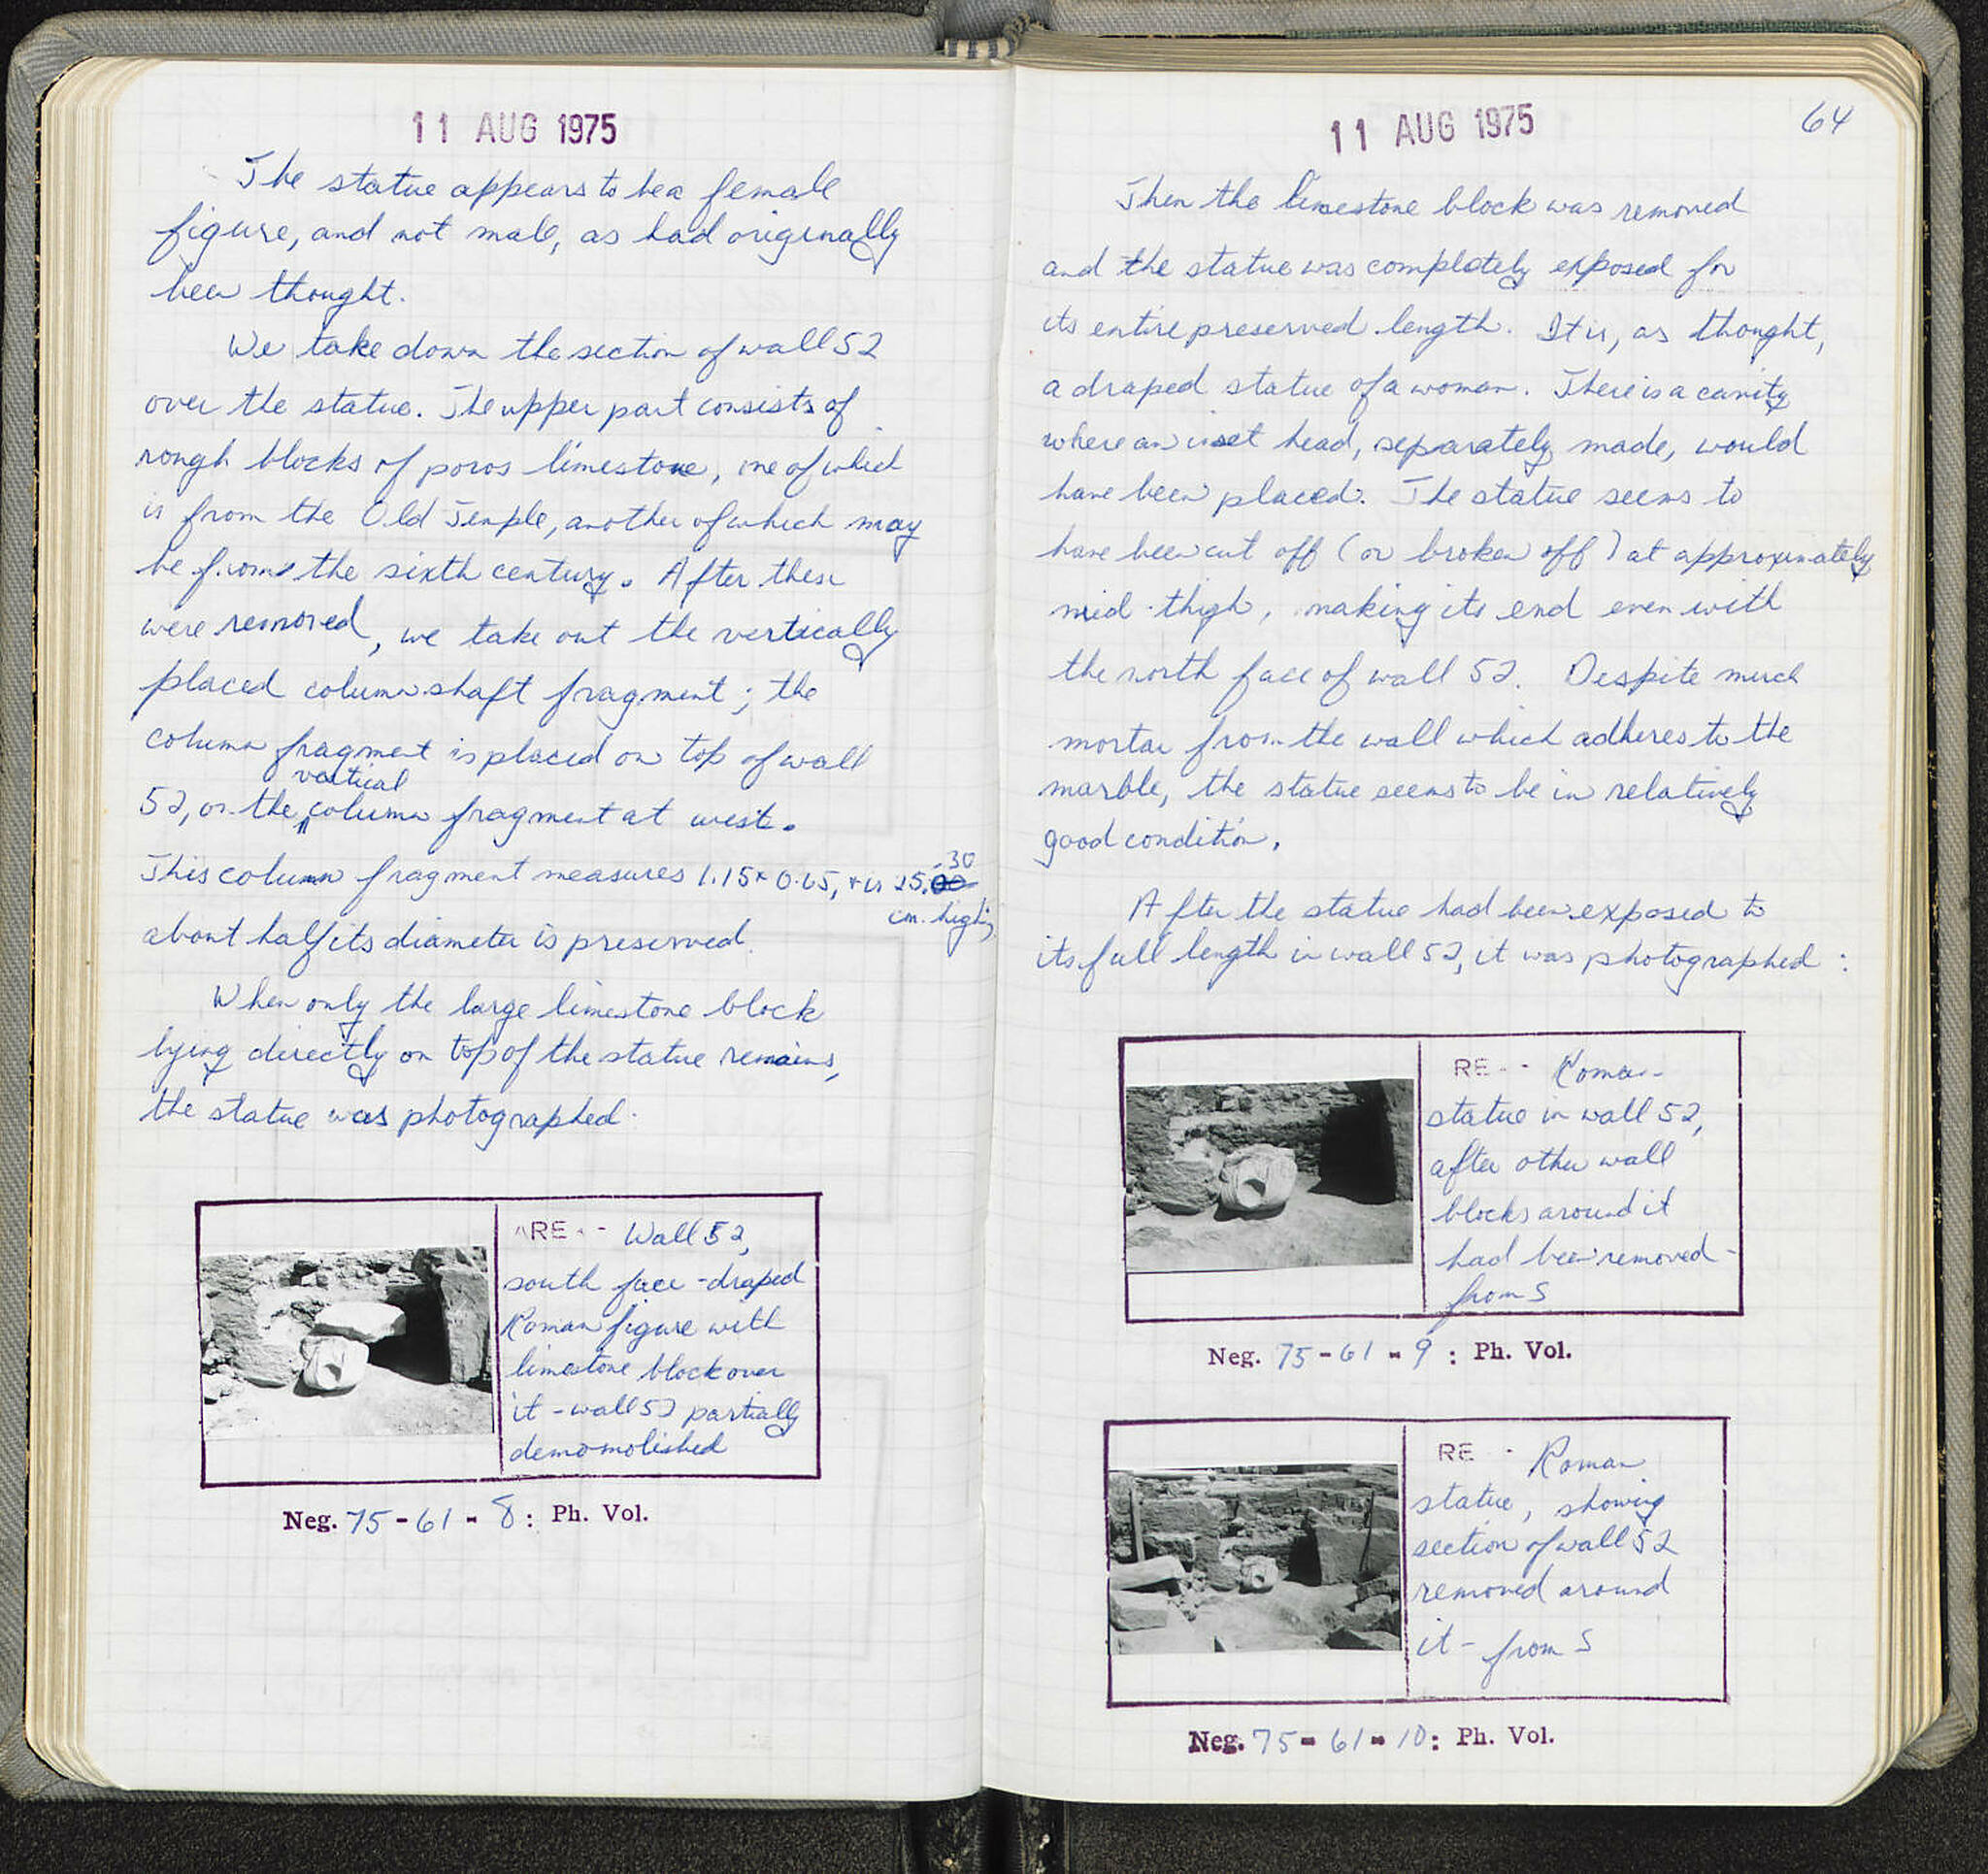 11 AUG 1975
The statue appears to be a female
figure, and not male, as had originally
been thought.
We take down the section of wall 52
over the statue. The upper part consists of
rough blocks of poros limestone, one of which
is from the Old Temple, another of which may
be from the sixth century. After these
were removed, we take out the vertically
placed column shaft fragment; the
column fragment is placed on top of wall
vertical
52, on the column fragment at west.
This column fragment measures 1.15 x 0.65, + is 25
-30
cm. high;
about half its diameter is preserved.
When only the large limestone block
lying directly on top of the statue remains,
the statue was photographed.
ARE - Wall 52,
south face - draped
Roman figure with
limestone block over
it - wall 52 partially
demomolished
Neg. 75-61-8: Ph. Vol.
11 AUG 1975
64
Then the limestone block was removed
and the statue was completely exposed for
its entire preserved length. It is, as thought,
a draped statue of a woman. There is a cavity
where an inset head, separately made, would
have been placed. The statue seems to
have been cut off (or broken off) at approximately
mid-thigh, making its end even with
the north face of wall 52. Despite much
mortar from the wall which adheres to the
marble, the statue seems to be in relatively
good condition.
After the statue had been exposed to
its full length in wall 52, it was photographed:
RE - - Roman
statue in wall 52,
after other wall
blocks around it
had been removed -
from S
Neg. 75-61-9: Ph. Vol.
RE - Roman
statue, showing
section of wall 52
removed around
it - from S
Neg. 75-61-10: Ph. Vol.